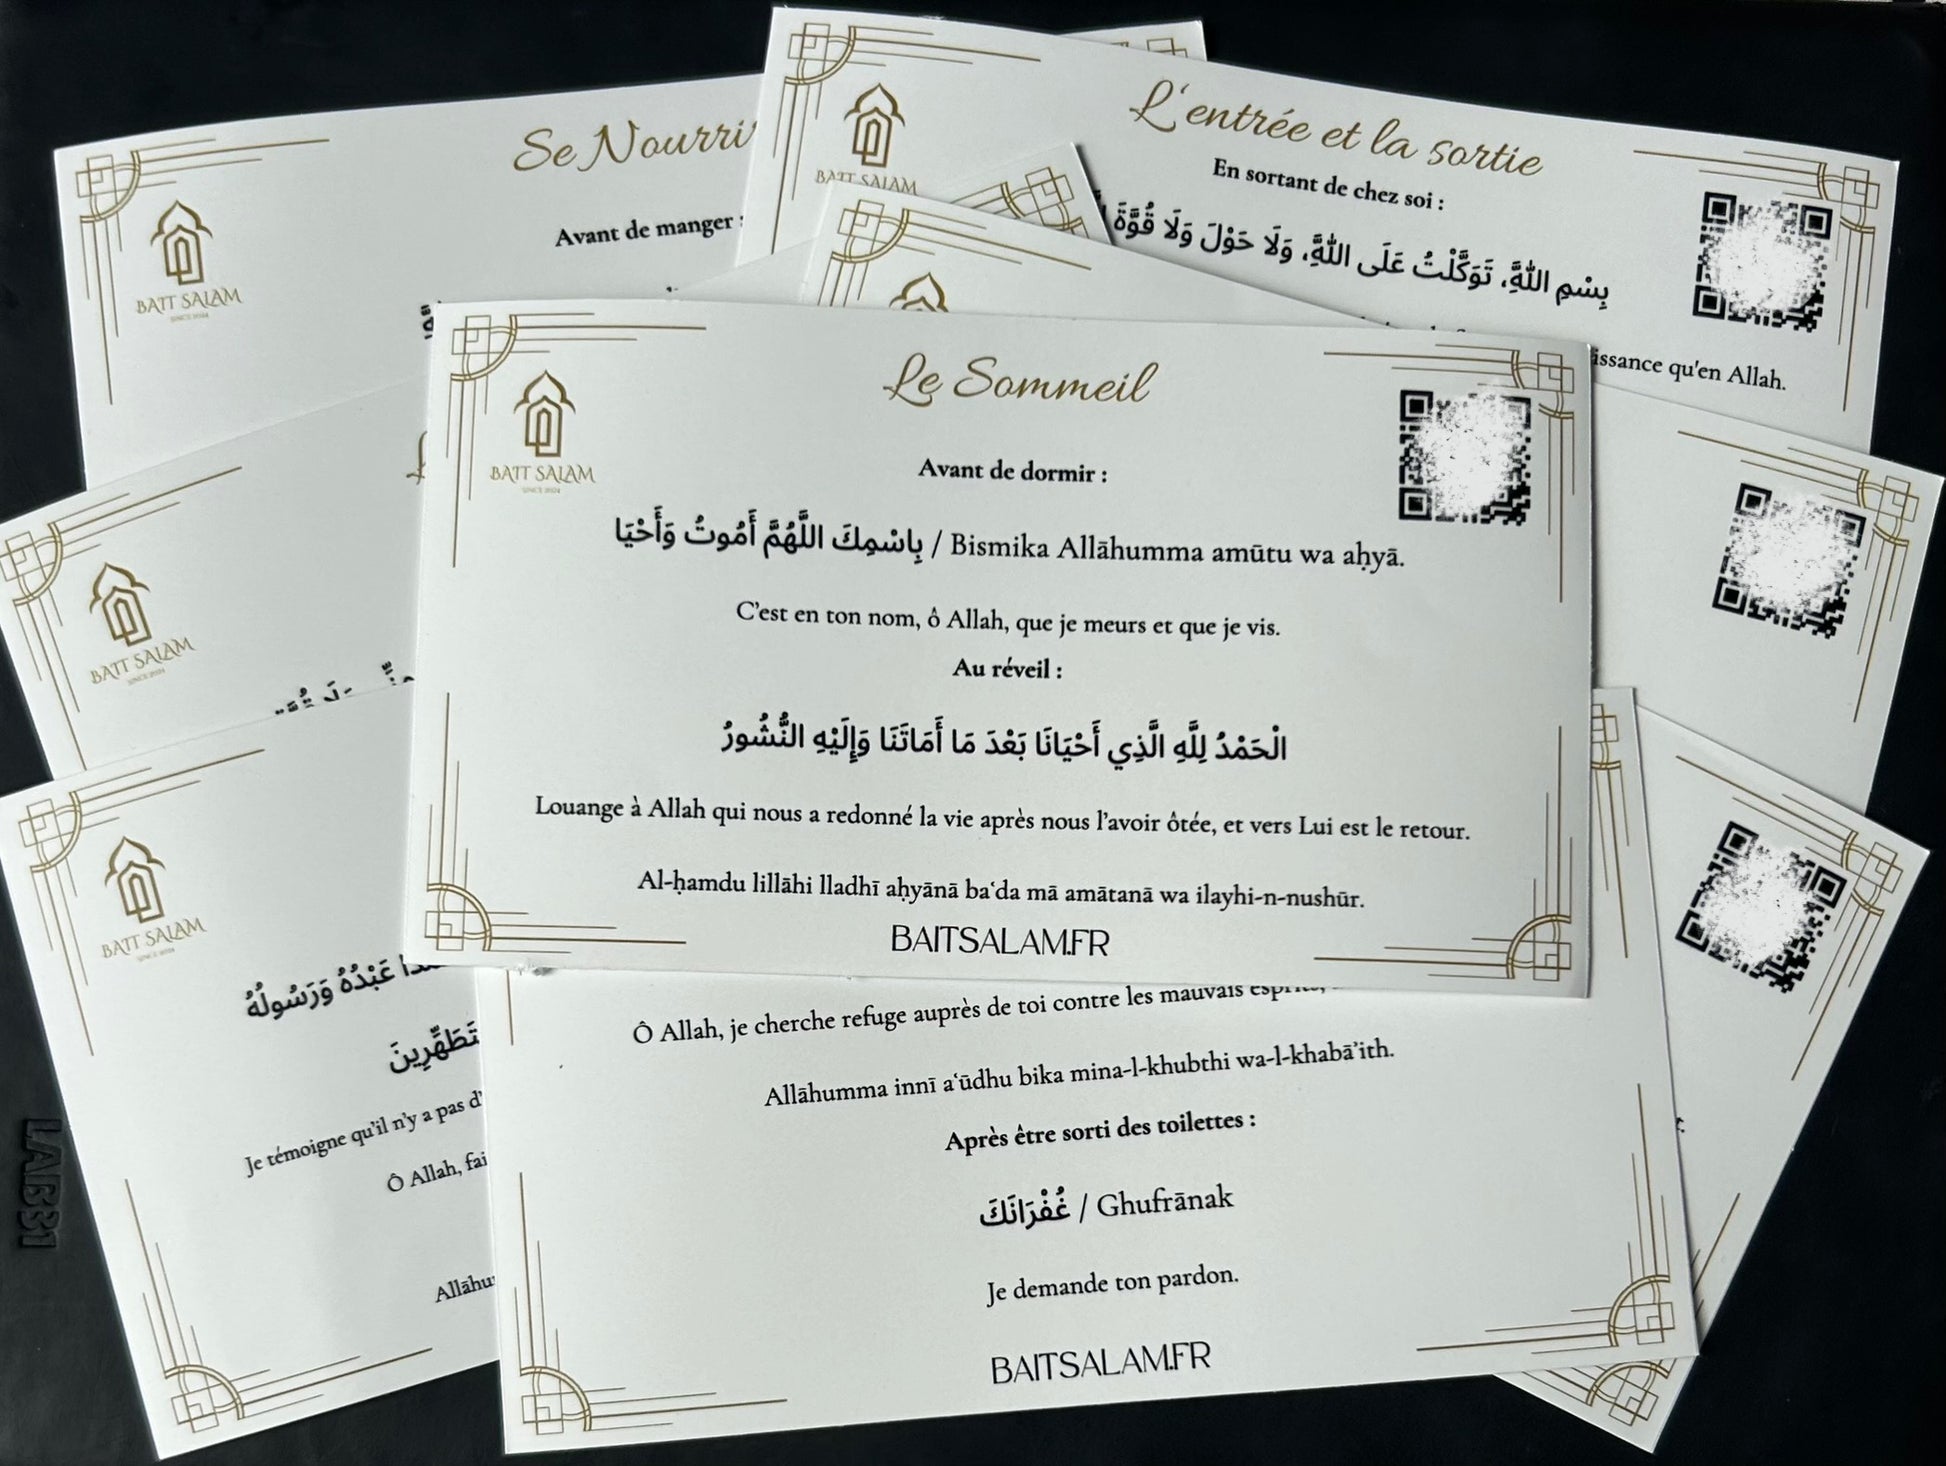 Se Nourri
Avant de manger :
BAIT SALAM
SINCE 2024
L'entrée et la sortie
En sortant de chez soi :
بِسْمِ اللَّهِ، تَوَكَّلْتُ عَلَى اللَّهِ، وَلَا حَوْلَ وَلَا قُوَّةَ
issance qu'en Allah.
BAIT SALAM
Le Sommeil
BAIT SALAM
SINCE 2024
Avant de dormir :
بِاسْمِكَ اللَّهُمَّ أَمُوتُ وَأَحْيَا / Bismika Allāhumma amūtu wa aḥyā.
C'est en ton nom, ô Allah, que je meurs et que je vis.
Au réveil :
الْحَمْدُ لِلَّهِ الَّذِي أَحْيَانَا بَعْدَ مَا أَمَاتَنَا وَإِلَيْهِ النُّشُورُ
Louange à Allah qui nous a redonné la vie après nous l'avoir ôtée, et vers Lui est le retour.
Al-ḥamdu lillāhi lladhī aḥyānā ba‘da mā amātanā wa ilayhi-n-nushūr.
BAITSALAM.FR
BAIT SALAM
SINCE 2024
BAIT SALAM
SINCE 2024
عَبْدُهُ وَرَسُولُهُ
تَطَهِّرِينَ
Je témoigne qu'il n'y a pas d'
Ô Allah, fai
Allāhu
Ô Allah, je cherche refuge auprès de toi contre les mauvais esprits,
Allāhumma innī a‘ūdhu bika mina-l-khubthi wa-l-khabā’ith.
Après être sorti des toilettes :
غُفْرَانَكَ / Ghufrānak
Je demande ton pardon.
BAITSALAM.FR
LAB31